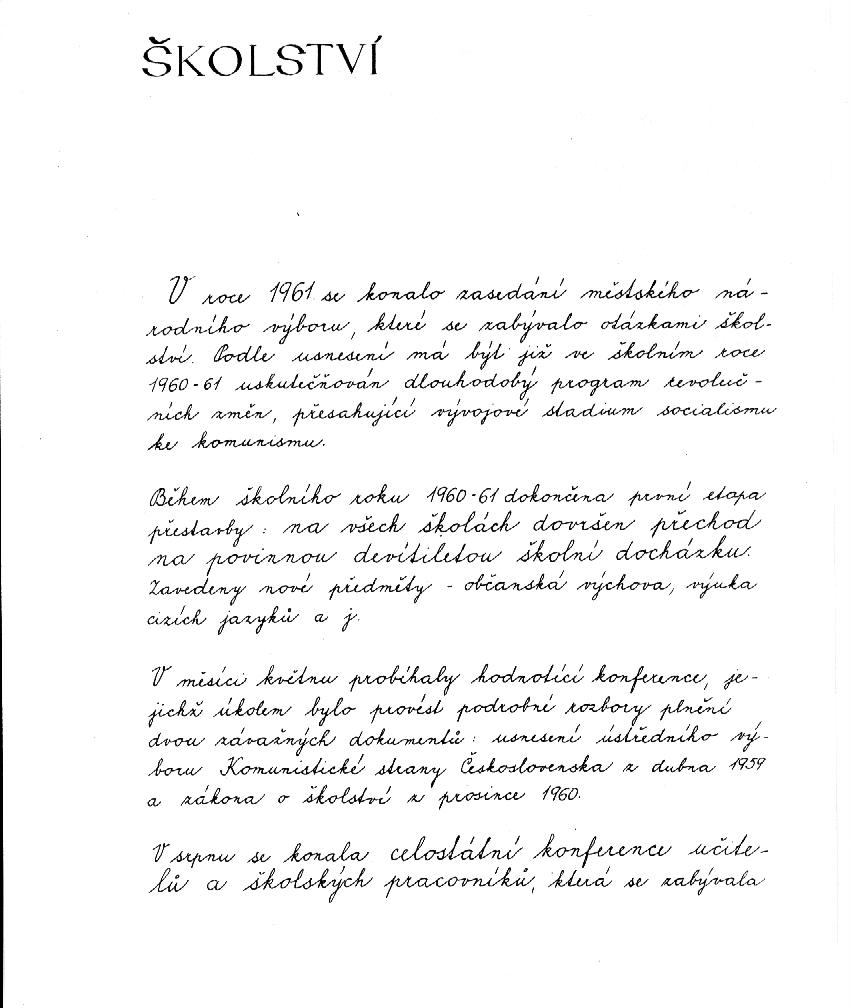 ŠKOLSTVÍ
V roce 1961 se konalo zasedání městského ná-
rodního výboru, které se zabývalo otázkami škol-
ství. Podle usnesení má být již ve školním roce
1960-61 uskutečňován dlouhodobý program revoluč-
ních změn, přesahující vývojové stadium socialismu
ke komunismu.
Během školního roku 1960-61 dokončena první etapa
přestavby : na všech školách dovršen přechod
na povinnou devítiletou školní docházku.
Zavedeny nové předměty - občanská výchova, výuka
cizích jazyků a j.
V měsíci květnu probíhaly hodnotící konference, je-
jichž úkolem bylo provést podrobné rozbory plnění
dvou závažných dokumentů : usnesení ústředního vý-
boru Komunistické strany Československa z dubna 1959
a zákona o školství z prosince 1960.
V srpnu se konala celostátní konference učite-
lů a školských pracovníků, která se zabývala